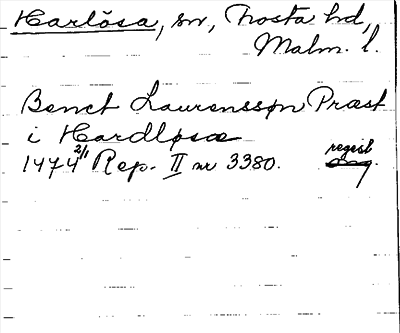 Harlösa, sn, Frosta hd,
Malm. l.
Benct Laurenssøn Præst
i Hardløsæ
1474 2/1 Rep. II nr 3380.
regist